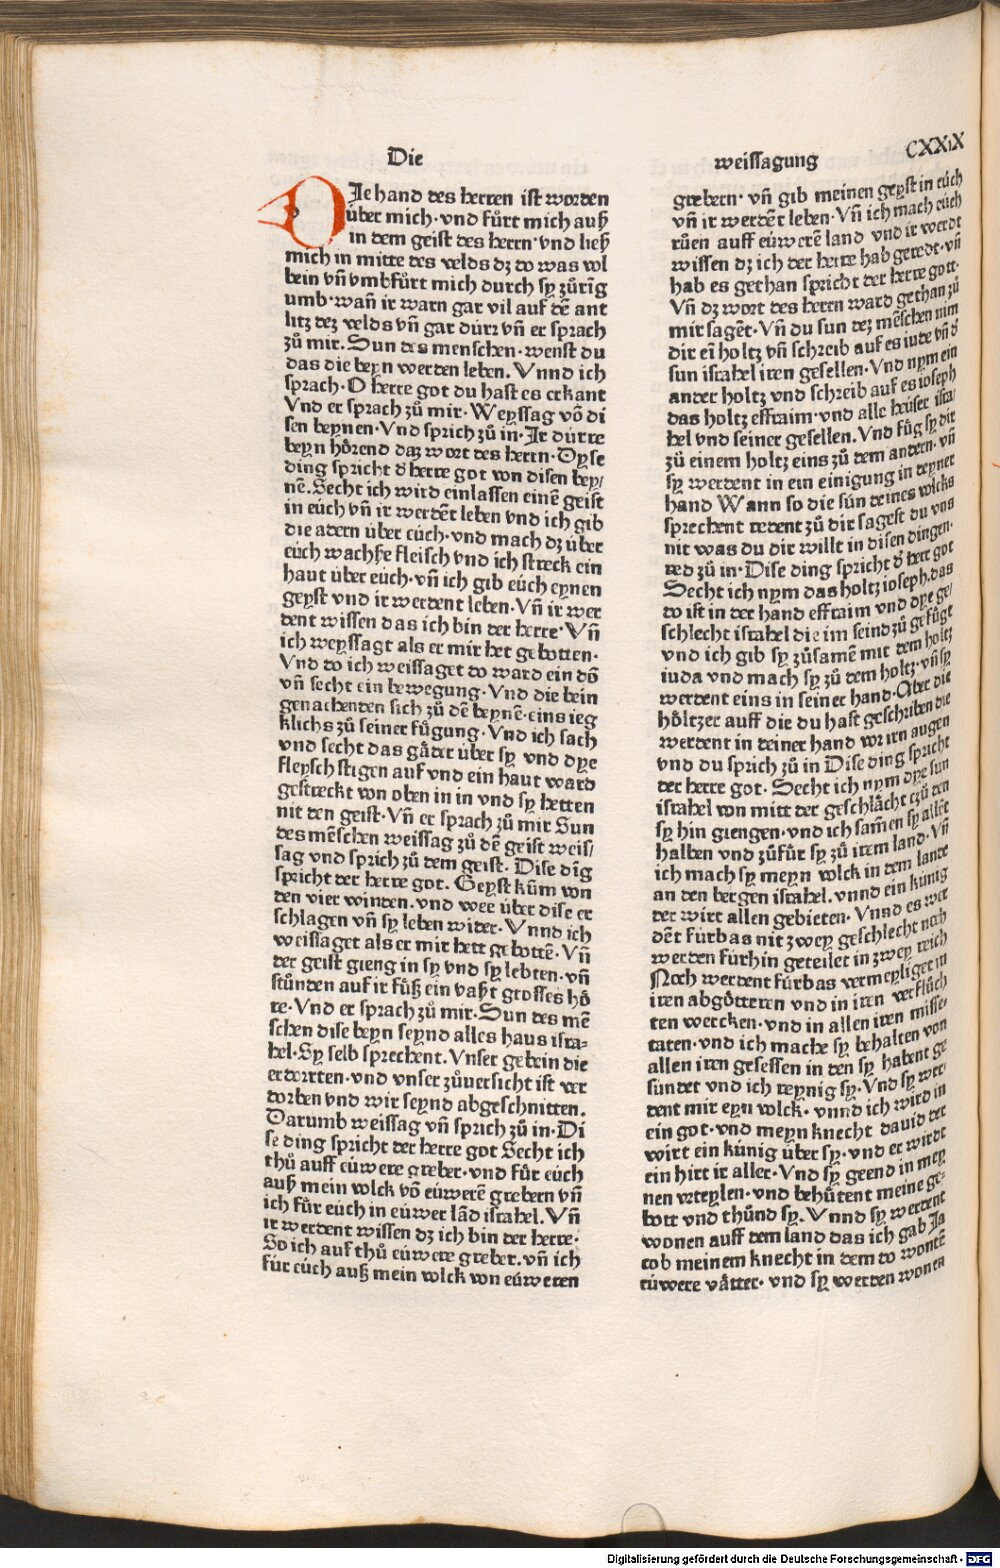 Die
weissagung
CXXIX
DIe hand des herren ist worden
über mich· vnd fůrt mich auß
in dem geist des herrn· vnd ließ
mich in mitte des velds dz do was vol
bein vñ vmbfůrt mich durch sy zůrīg
umb· wañ ir warn gar vil auf dē ant
litz dez velds vñ gar dürr vñ er sprach
zů mir. Sun des menschen· wenst du
das die beyn werden leben. Vnnd ich
sprach· O herre got du hast es erkant
Vnd er sprach zů mir· Weyssag võ di
sen beynen· Vnd sprich zů in· Ir dürre
beyn hörend daz wort des herrn· Dyse
ding spricht d̄ herre got von disen bey/
nē. Secht ich wird einlassen einē geist
in eüch vñ ir werdēt leben vnd ich gib
die adern über eüch· vnd mach dz über
eüch wachße fleisch vnd ich streck ein
haut über eüch· vñ ich gib eüch eynen
geyst vnd ir werdent leben· Vñ ir wer
dent wissen das ich bin der herre· Vñ
ich weyssagt als er mir het gebotten·
Vnd do ich weissaget do ward ein dõ
vñ secht ein bewegung· Vnd die bein
genachenden sich zů dē beynē· eins ieg
klichs zů seiner fůgung· Vnd ich sach
vnd secht das gäder über sy vnd dye
fleysch stigen auf vnd ein haut ward
gestreckt von oben in in vnd sy hetten
nit den geist· Vñ er sprach zů mir Sun
des mēschen weissag zů dē geist weis/
sag vnd sprich zů dem geist· Dise dīg
spricht der herre got. Geyst kům von
den vier winden. vnd wee über dise er
schlagen vñ sy leben wider· Vnnd ich
weissaget als er mir hett gebottē· Vñ
der geist gieng in sy vnd sy lebten· vñ
stůnden auf ir fůß ein vaßt grosses hö
re· Vnd er sprach zů mir· Sun des mē
schen dise beyn seynd alles haus isra-
hel· Sy selb sprechent. Vnser gebein die
erdorrten· vnd vnser zůuersicht ist ver
dorben vnd wir seynd abgeschnitten.
Darumb weissag vñ sprich zů in· Di
se ding spricht der herre got Secht ich
thů auff eüwere greber· vnd fůr eüch
auß mein volck võ eüwerē grebern vñ
ich fůr eüch in eüwer lãd israhel. Vñ
ir werdent wissen dz ich bin der herre·
So ich auf thů eüwere greber. vñ ich
für eüch auß mein volck von eüweren
grebern· vñ gib meinen geyst in eüch
vñ ir werdēt leben· Vñ ich mach eüch
růen auff eüwerē land vnd ir werdt
wissen dz ich der herre hab geredt· vñ
hab es gethan spricht der herre gott·
Vñ dz wort des herrn ward gethan zů
mir sagēt· Vñ du sun dez mēschen nim
dir eī holtz vñ schreib auf es iude vñ d̄
sun israhel iren gesellen· Vnd nym ein
ander holtz vnd schreib auf es ioseph
das holtz effraim· vnd alle heüser isra/
hel vnd seiner gesellen. Vnd fůg sy dir
zů einem holtz eins zů dem andern· vñ
sy werdent in ein einigung in deyner
hand Wann so die sün deines volcks
sprechent redent zů dir sagest du vns
nit was du dir willt in disen dingen·
red zů in· Dise ding spricht d̄ herr got
Secht ich nym das holtz ioseph. das
do ist in der hand effraim vnd dye ge/
schlecht israhel die im seind zů gefůgt
vnd ich gib sy zůsamē mit dem holtz
iuda vnd mach sy zů dem holtz· vñ sy
werdent eins in seiner hand· Aber die
höltzer auff die du hast geschriben die
werdent in deiner hand vor iren augen
vnd du sprich zů in Dise ding spricht
der herre got· Secht ich nym dye sun
israhel von mitt der geschlächt czů den
sy hin giengen· vnd ich samēn sy allēt
halben vnd zůfůr sy zů irem land· Vñ
ich mach sy meyn volck in dem lande
an den bergen israhel. vnnd ein künig
der wirt allen gebieten· Vnnd es wer
dēt fürbas nit zwey geschlecht noch
werden fürhin geteilet in zwey reich
Noch werdent fürbas vermeyliget in
iren abgötteren vnd in iren verflůch
ten wercken· vnd in allen iren misse-
taten· vnd ich mache sy behalten von
allen iren gesessen in den sy habent ge
sündet vnd ich reynig sy· Vnd sy wer-
dent mir eyn volck· vnnd ich wird in
ein got· vnd meyn knecht dauid der
wirt ein künig über sy· vnd er wirdt
ein hirt ir aller· Vnd sy geend in mey
nen vrteylen· vnd behůtent meine ge-
bott vnd thůnd sy. Vnnd sy werdent
wonen auff dem land das ich gab Ja
cob meinem knecht in dem do wontē
eüwere vätter· vnd sy werden wonen
Digitalisierung gefördert durch die Deutsche Forschungsgemeinschaft - DFG